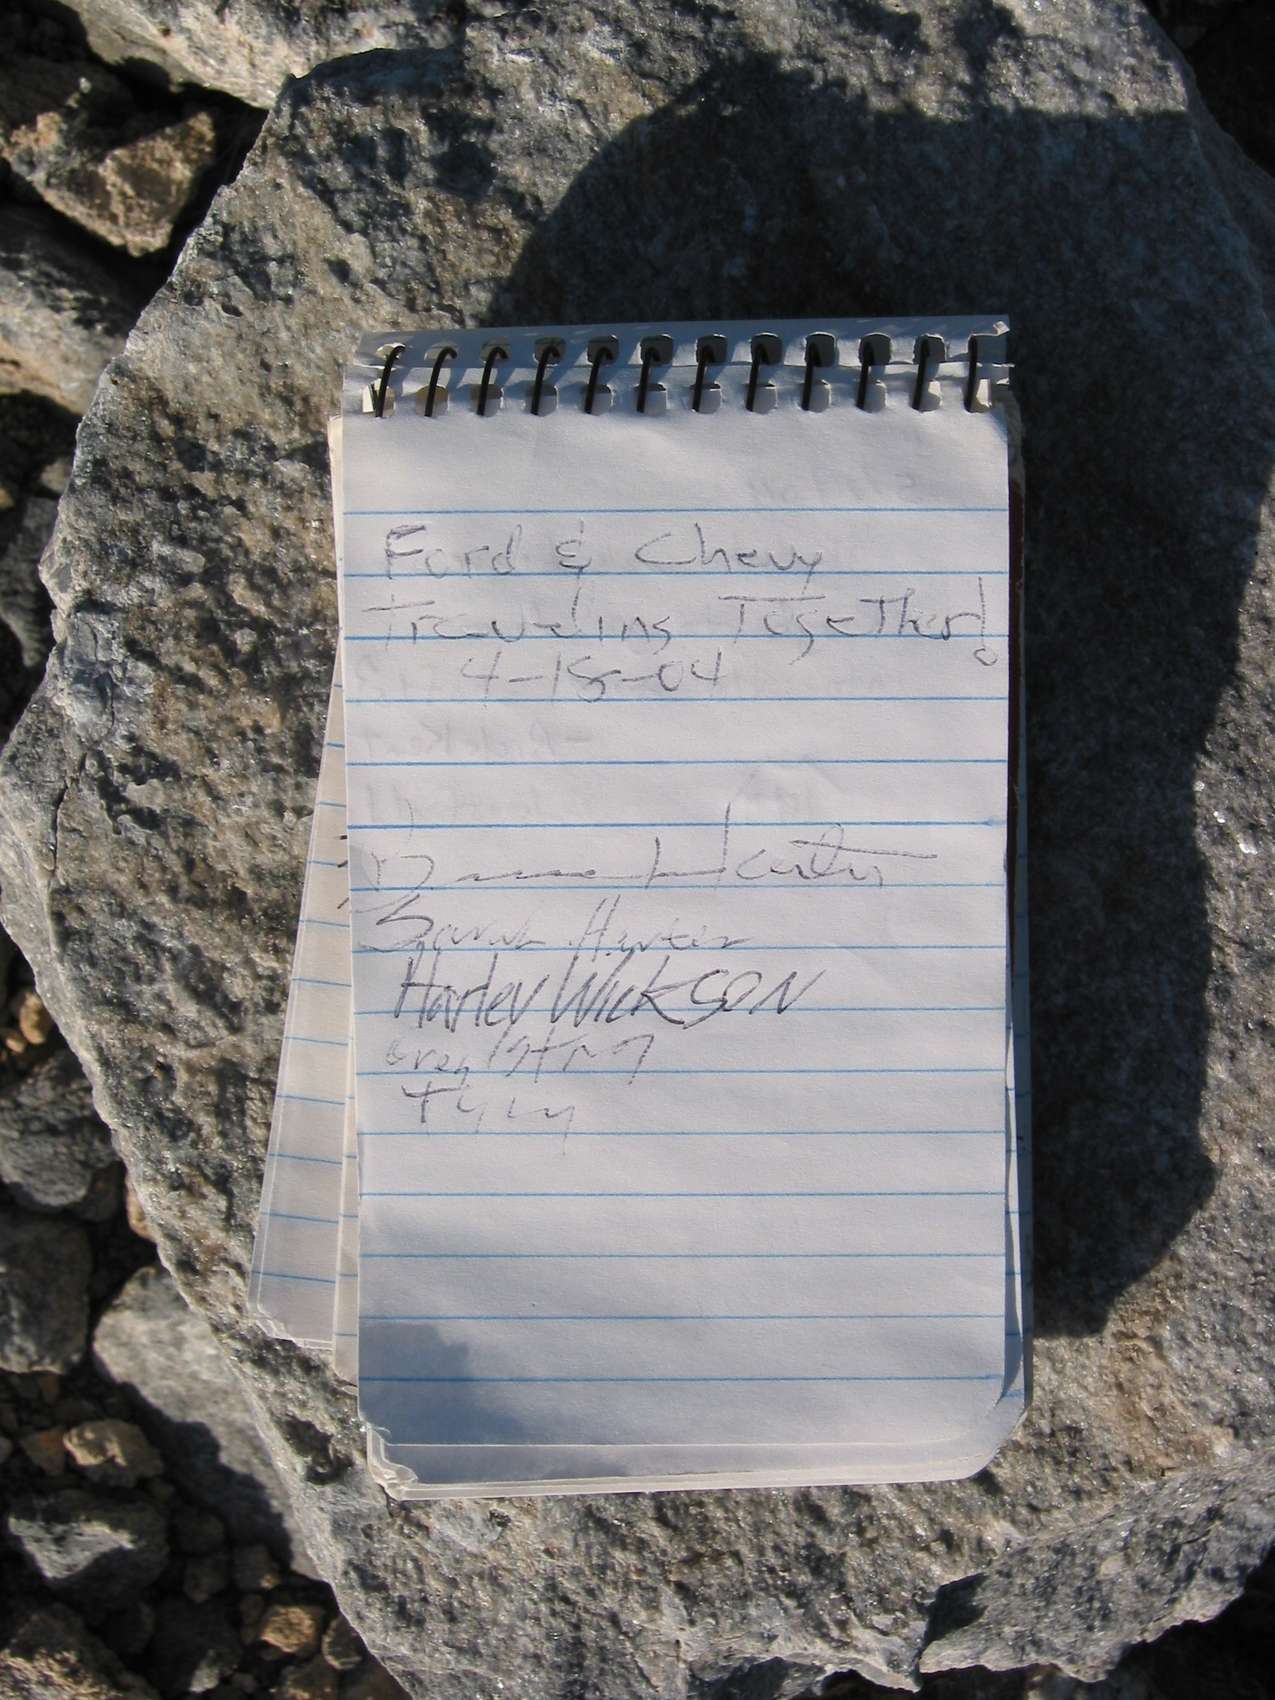 Ford & Chevy
Traveling Together!
4-18-04
Sarah Harter
Harley Wickson
Greg